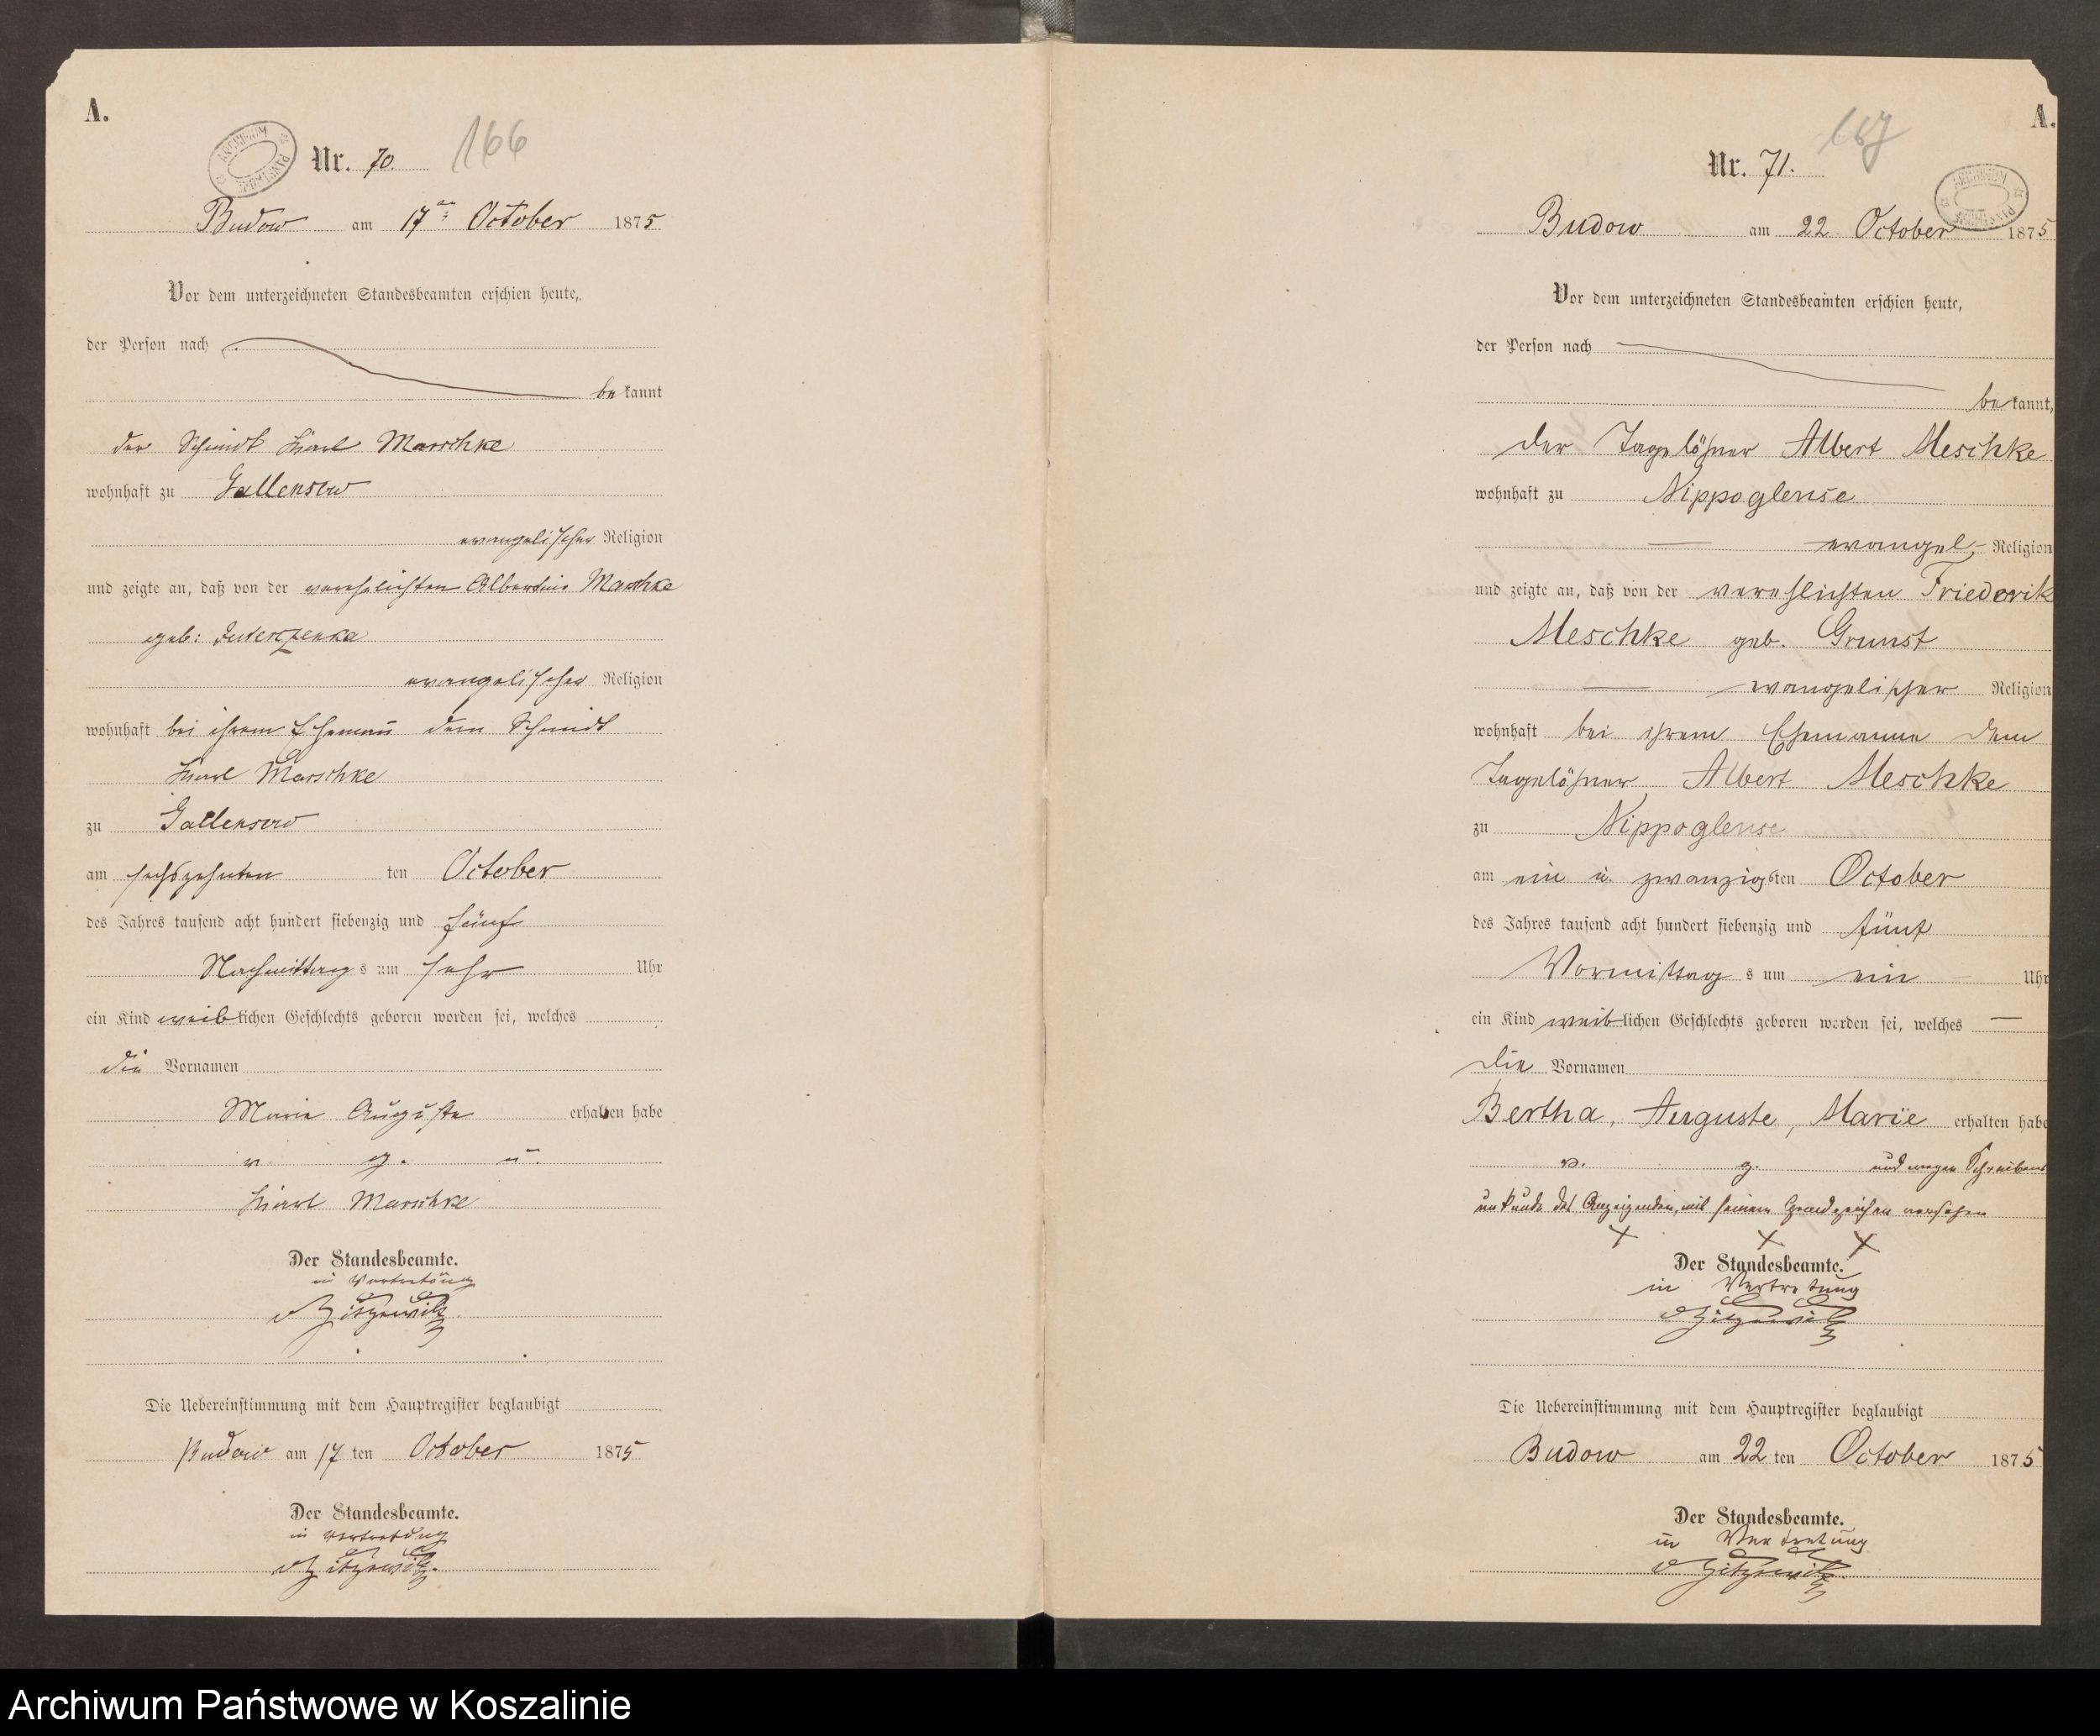 A.
Nr. 70.
166
Budow am 17ten October 1875
Vor dem unterzeichneten Standesbeamten erschien heute,
der Person nach
be kannt
der Schmidt Karl Marschke
wohnhaft zu Gallensow
evangelischer Religion
und zeigte an, daß von der verehelichten Albertine Maschke
geb:
evangelischer Religion
wohnhaft bei ihrem Ehemann dem Schmidt
Karl Marschke
zu Gallensow
am sechszehnten ten October
des Jahres tausend acht hundert siebenzig und fünf
Nachmittag s um Uhr
ein Kind weib lichen Geschlechts geboren worden sei, welches
die Vornamen
Marie Auguste erhalten habe
v. g. u.
Karl Marschke
Der Standesbeamte.
in Vertretung
v Zitzewitz
Die Uebereinstimmung mit dem Hauptregister beglaubigt
Budow am 17 ten October 1875
Der Standesbeamte.
in Vertretung
v Zitzewitz
A.
Nr. 71.
167
Budow am 22 October 1875
Vor dem unterzeichneten Standesbeamten erschien heute,
der Person nach
be kannt,
der Tagelöhner Albert Meschke
wohnhaft zu Nippoglense
evangel. Religion
und zeigte an, daß von der verehelichten Friederik
Meschke geb. Grunst
evangelischer Religion
wohnhaft bei ihrem Ehemanne dem
Tagelöhner Albert Meschke
zu Nippoglense
am ein u. zwanzigsten October
des Jahres tausend acht hundert siebenzig und fünf
Vormittag s um ein Uhr
ein Kind weib lichen Geschlechts geboren worden sei, welches
die Vornamen
Bertha, Auguste, Marie erhalten habe
v. g. und wegen Schreibens
unkunde des Anzeigenden, mit seinem Handzeichen versehen
X X X
Der Standesbeamte.
in Vertretung
v Zitzewitz
Die Uebereinstimmung mit dem Hauptregister beglaubigt
Budow am 22 ten October 1875
Der Standesbeamte.
in Vertretung
v Zitzewitz
Archiwum Państwowe w Koszalinie